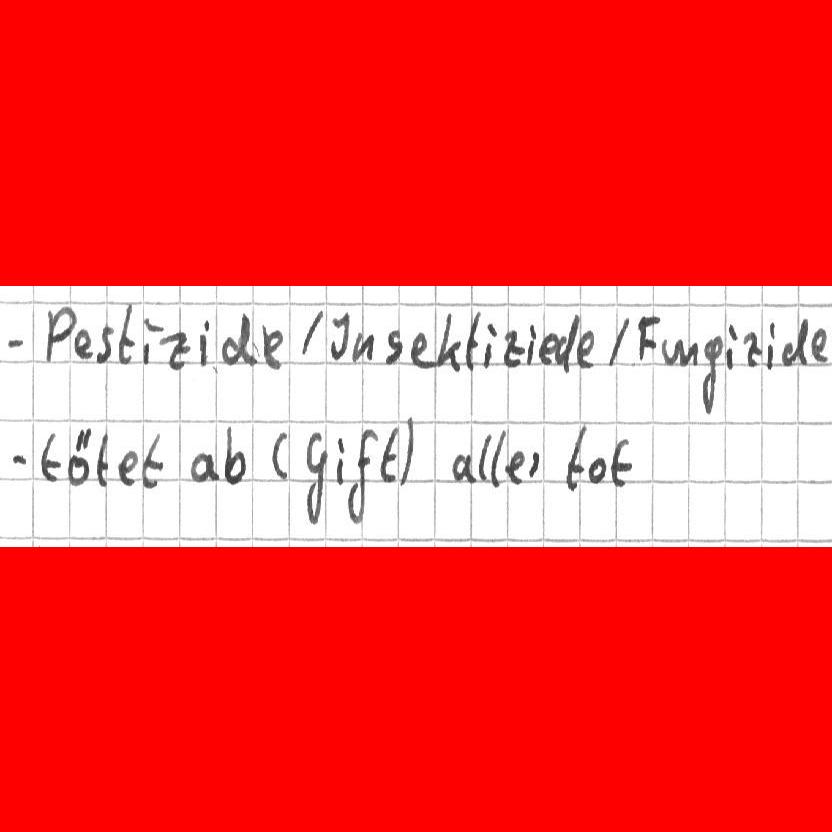 - Pestizide / Insektiziede / Fungizide
- tötet ab (Gift) alles tot